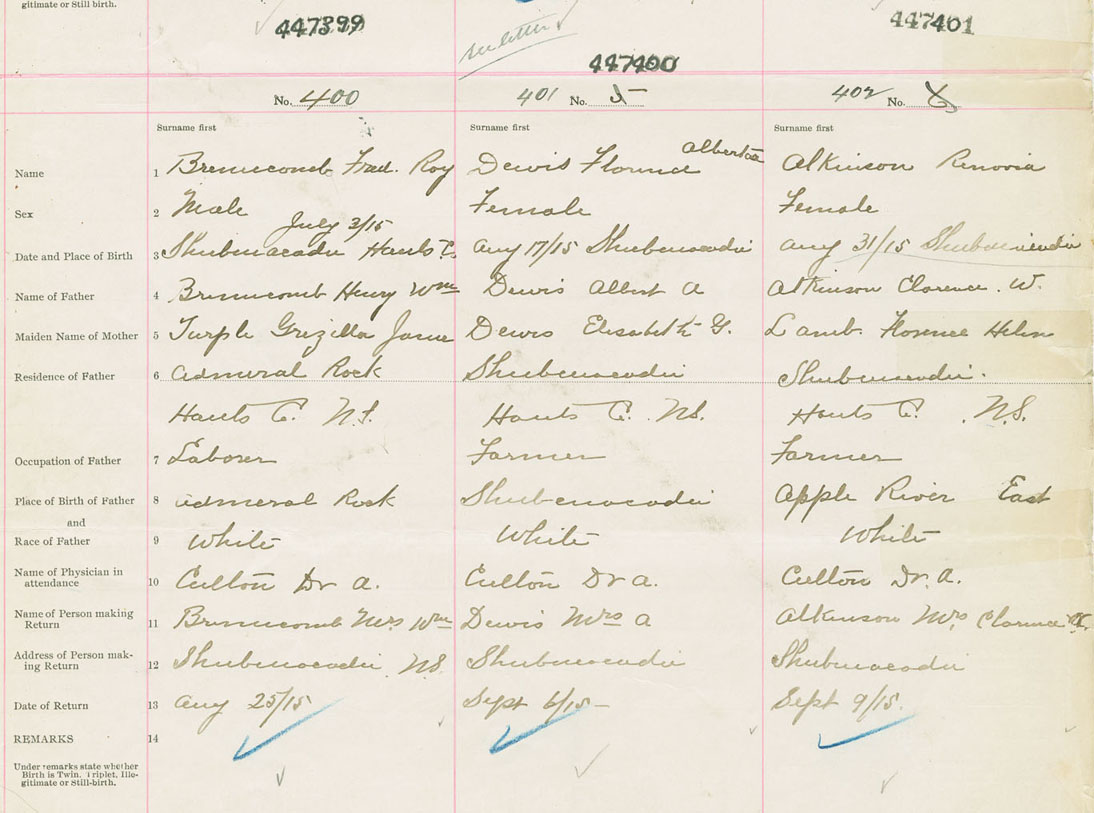 gitimate or Still birth.
447399
see letter
447400
447401
No. 400
401 No. 5
402 No. 6
Surname first
Surname first
Surname first
Name 1 Brenncomb Fred. Roy
Dewis Florence Alberta
Atkinson Renovia
Sex 2 Male
Female
Female
July 3/15
Date and Place of Birth 3 Shubenacadie Hants C.
Aug 17/15 Shubenacadie
Aug 31/15 Shubenacadie
Name of Father 4 Brenncomb Henry Wm
Dewis Albert A
Atkinson Clarence. W.
Maiden Name of Mother 5 Turple Grizilla Jane
Dewis Elisabeth G.
Lamb. Florence Helen
Residence of Father 6 Admeral Rock
Shubenacadie
Shubenacadie.
Hants C. N.S.
Hants C. N.S.
Hants C. N.S.
Occupation of Father 7 Laborer
Farmer
Farmer
Place of Birth of Father 8 Admeral Rock
Shubenacadie
Apple River East
and
Race of Father 9 White
White
White
Name of Physician in
attendance 10 Culton Dr A.
Culton Dr A.
Culton Dr. A.
Name of Person making
Return 11 Brenncomb Mrs Wm
Dewis Mrs A
Atkinson Mrs Clarence
Address of Person mak-
ing Return 12 Shubenacadie N.S.
Shubenacadie
Shubenacadie
Date of Return 13 Aug 25/15
Sept 6/15
Sept 9/15.
REMARKS 14
Under remarks state whether
Birth is Twin, Triplet, Ille-
gitimate or Still-birth.